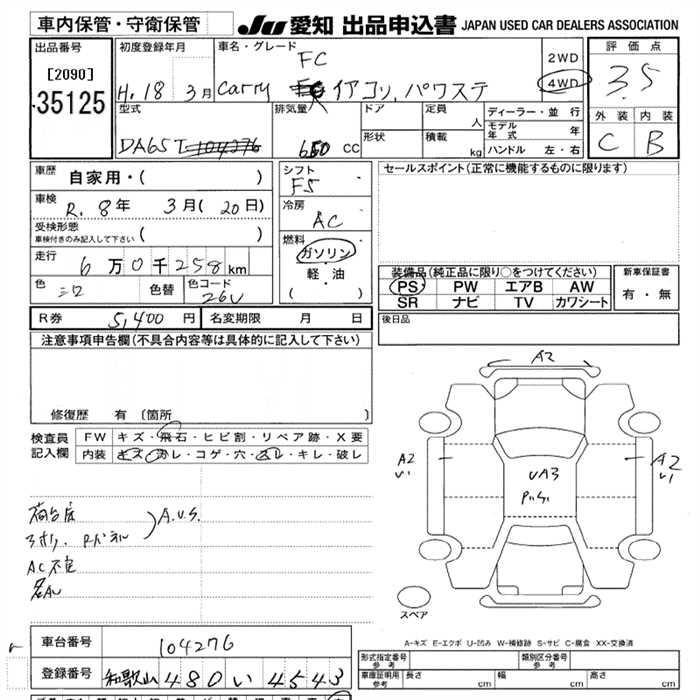 車内保管・守衛保管
JU 愛知 出品申込書 JAPAN USED CAR DEALERS ASSOCIATION
出品番号
[2090]
35125
初度登録年月
H. 18 3月
車名・グレード
FC
Carry
エアコン、パワステ
2WD
4WD
評価点
3.5
外装 内装
C B
型式
DA65T 104276
排気量
660 cc
ドア
形状
定員
人
積載
kg
ディーラー・並行
モデル年式 年
ハンドル 左・右
車歴 自家用・( )
車検 R. 8年 3月(20日)
受検形態
車検付きのみ記入して下さい ( )
走行 6万0千258km
色 シロ 色替 色コード 26U
シフト
F5
冷房
AC
燃料
ガソリン
軽・油
( )
セールスポイント(正常に機能するものに限ります)
装備品(純正品に限り○をつけてください)
PS PW エアB AW
SR ナビ TV カワシート
新車保証書
有・無
R券 5,400円 名変期限 月 日
後日品
注意事項申告欄(不具合内容等は具体的に記入して下さい)
修復歴 有 (箇所 )
検査員記入欄
FW キズ・飛石・ヒビ割・リペア跡・X要
内装 キズ・ヨゴレ・コゲ・穴・スレ・キレ・破レ
荷台底
AC不良
A.U.S.
A2
A2
A2
UA3
スペア
A-キズ E-エクボ U-凹み W-補修跡 S-サビ C-腐食 XX-交換済
車台番号 104276
登録番号 和歌山 480 い 4543
形式指定番号 参考
類別区分番号 参考
車庫証明用 参考 長さ cm 幅 cm 高さ cm